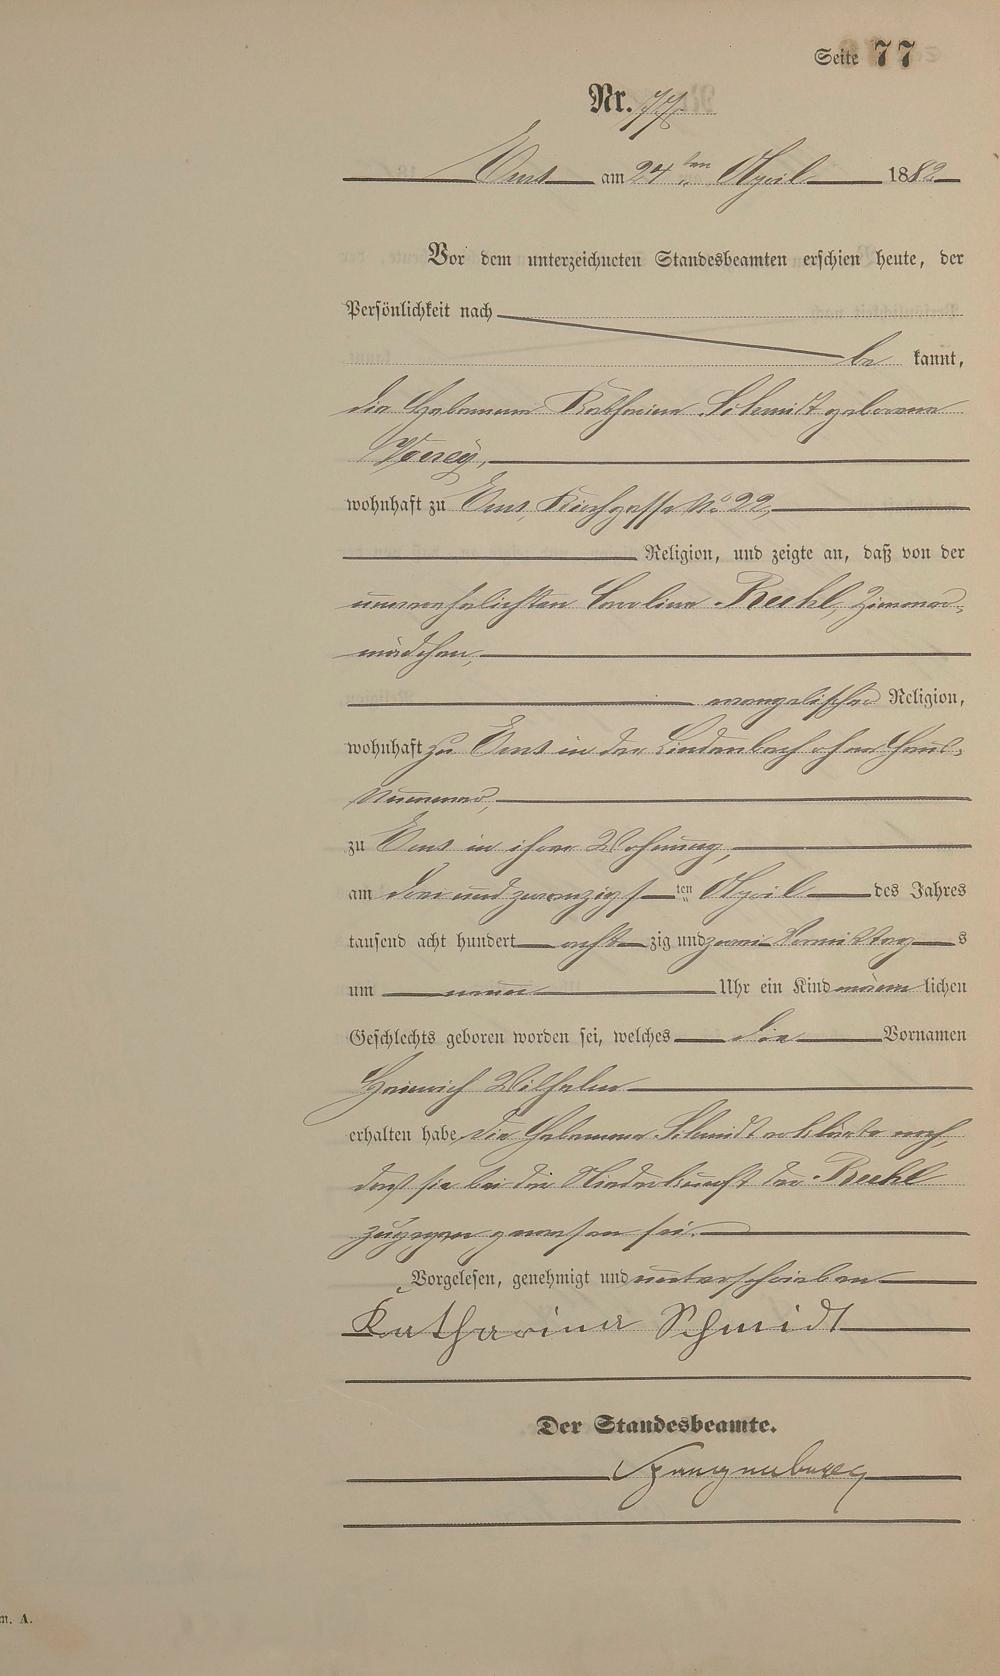 Seite 77
Nr. 77.
Ems am 24 ten April 1882
Vor dem unterzeichneten Standesbeamten erschien heute, der
Persönlichkeit nach
be kannt,
die Hebamme Katharina Schmidt geborene
wohnhaft zu Ems, Kirchgasse No 22,
Religion, und zeigte an, daß von der
unverehelichten Carolina Ruhl, Zimmer-
mädchen,
evangelischer Religion,
wohnhaft zu Ems in der Lindenbach ohne Haus-
nummer,
zu Ems in ihrer Wohnung,
am drei und zwanzigs ten April des Jahres
tausend acht hundert acht zig und zwei Vormittag s
um neun Uhr ein Kind männ lichen
Geschlechts geboren worden sei, welches die Vornamen
Heinrich Wilhelm
erhalten habe die Hebamme Schmidt erklärte noch,
daß sie bei der Niederkunft der Ruhl
zugegen gewesen sei.
Vorgelesen, genehmigt und unterschrieben
Katharina Schmidt
Der Standesbeamte.
Spangenberg
m. A.